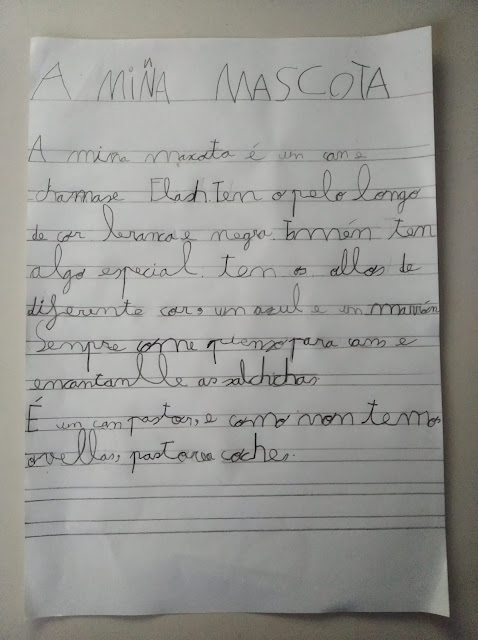 A MIÑA MASCOTA
A miña mascota é un can e
chamase Flash. Ten o pelo longo
de cor branca e negra. Tamén ten
algo especial, ten os ollos de
diferente cor, un azul e un marrón
Sempre come pienso para cans e
encantanlle as salchichas.
É un can pastor, e como non temos
ovellas, pastorea coches.